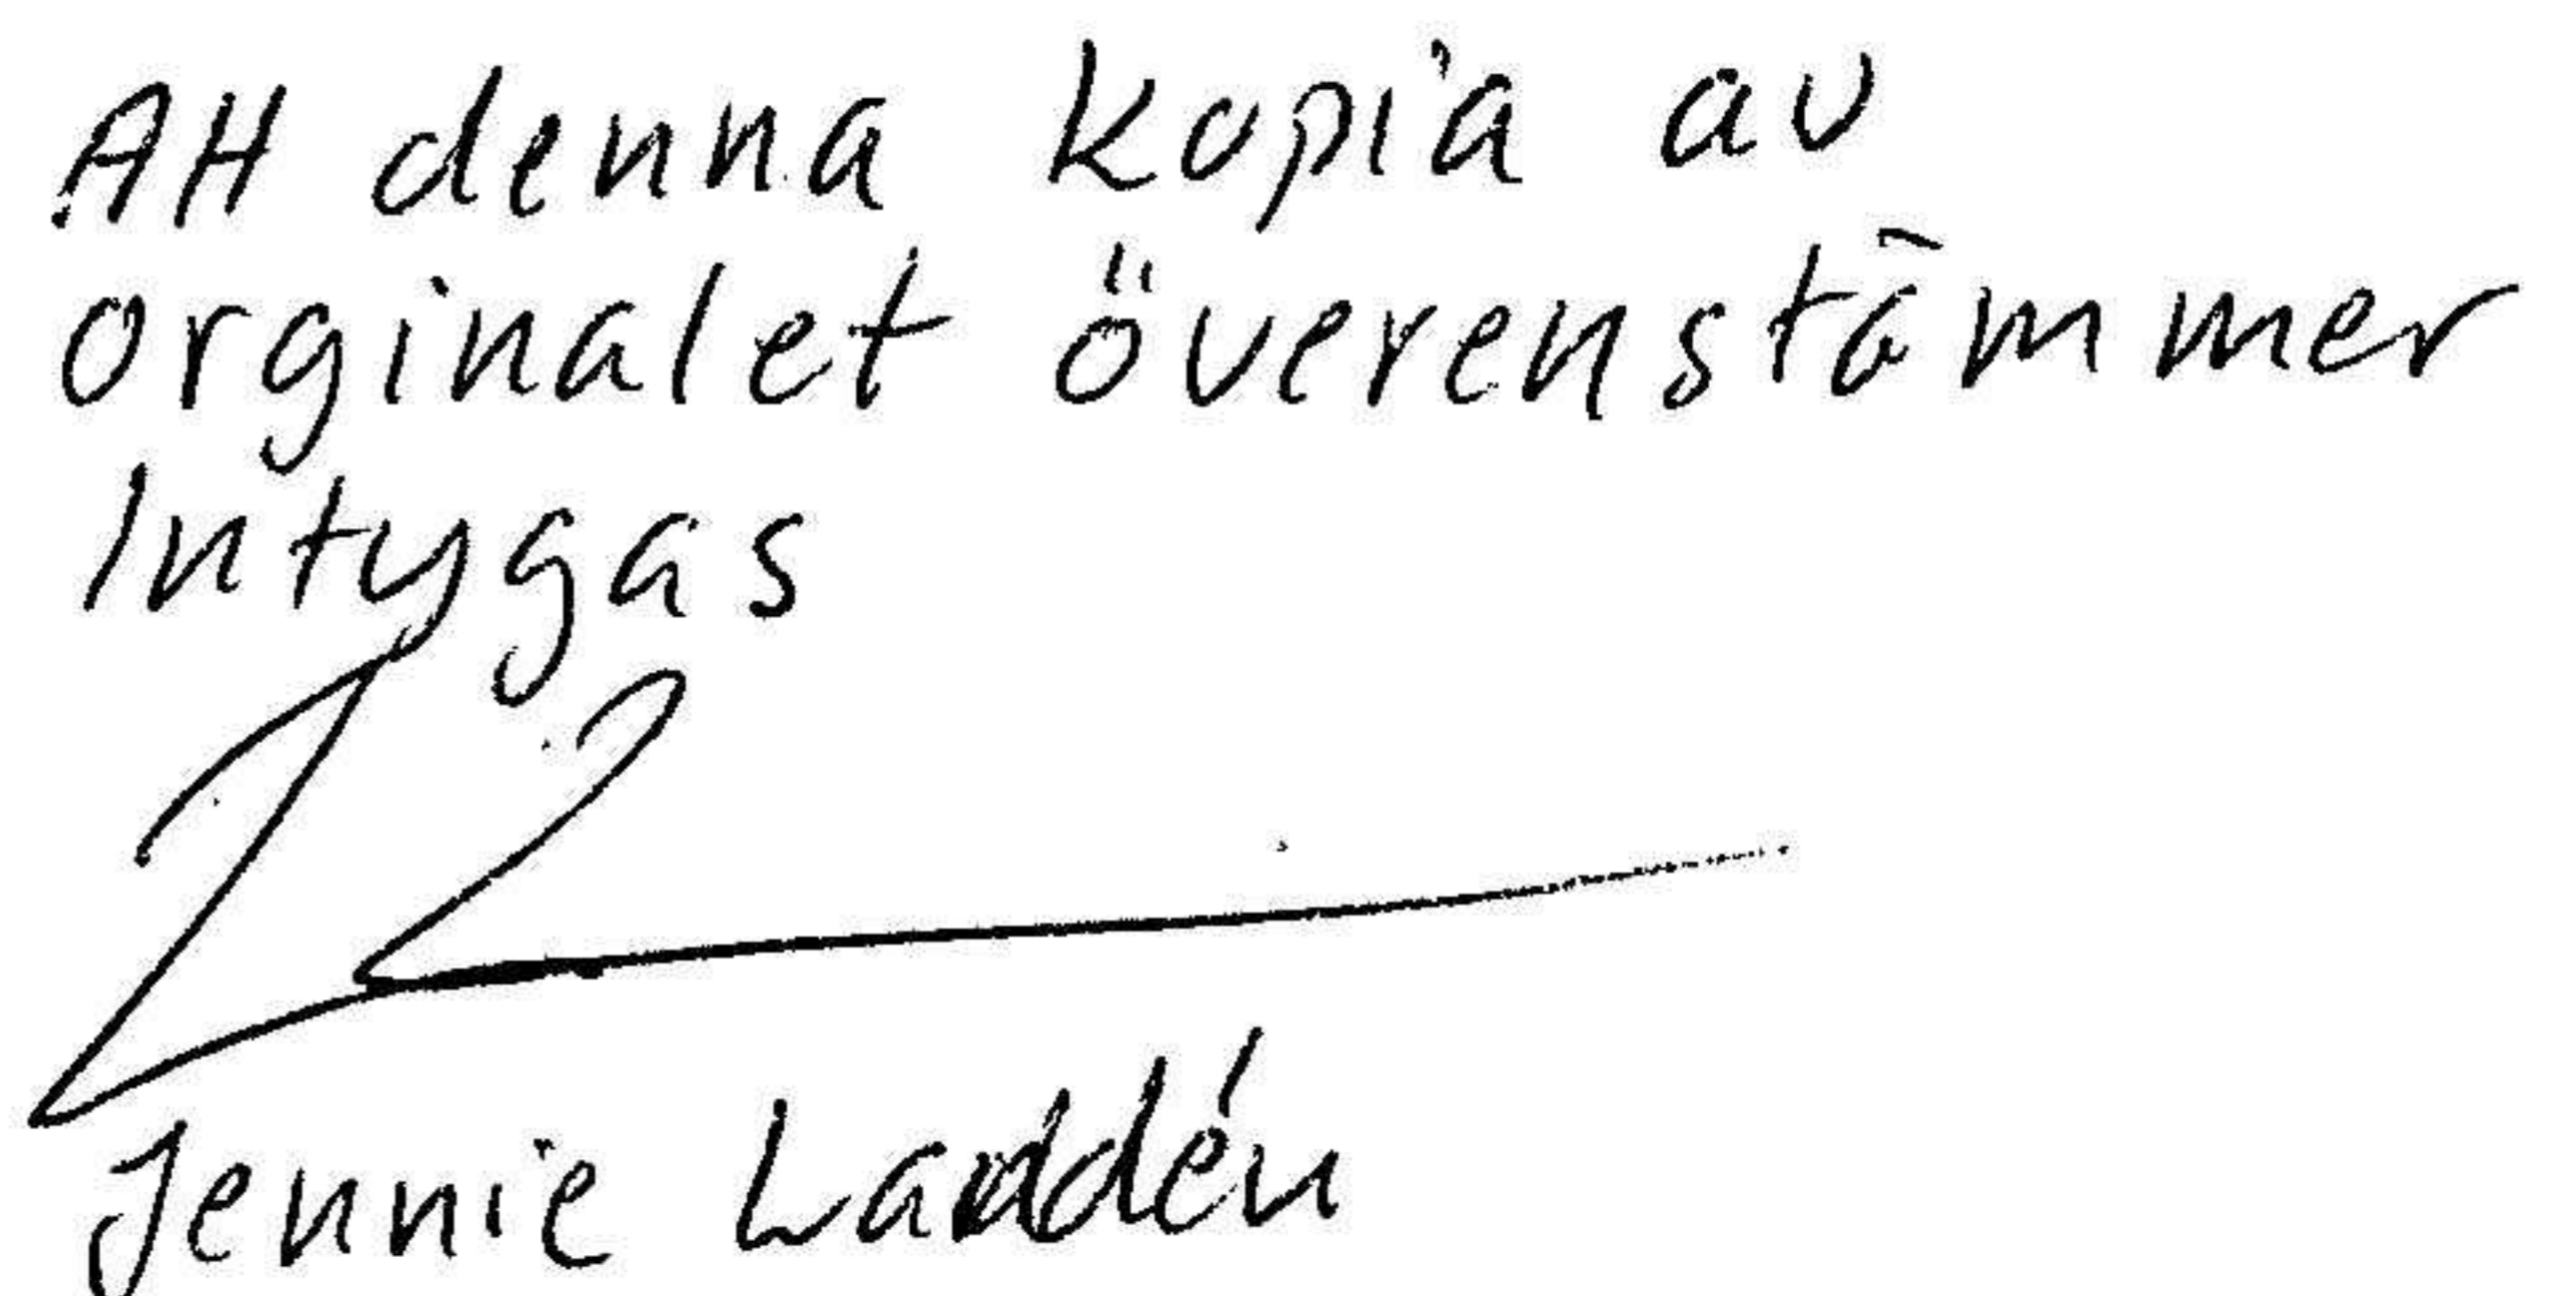 Att denna kopia av
orginalet överenstämmer
Intygas
Jennie Laddén